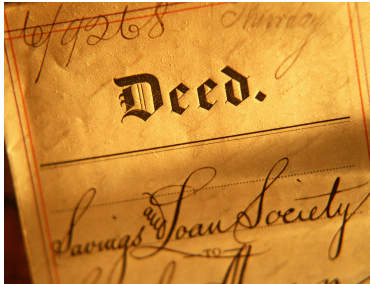 6/9268 Murray
Deed.
Savings and Loan Society
TO